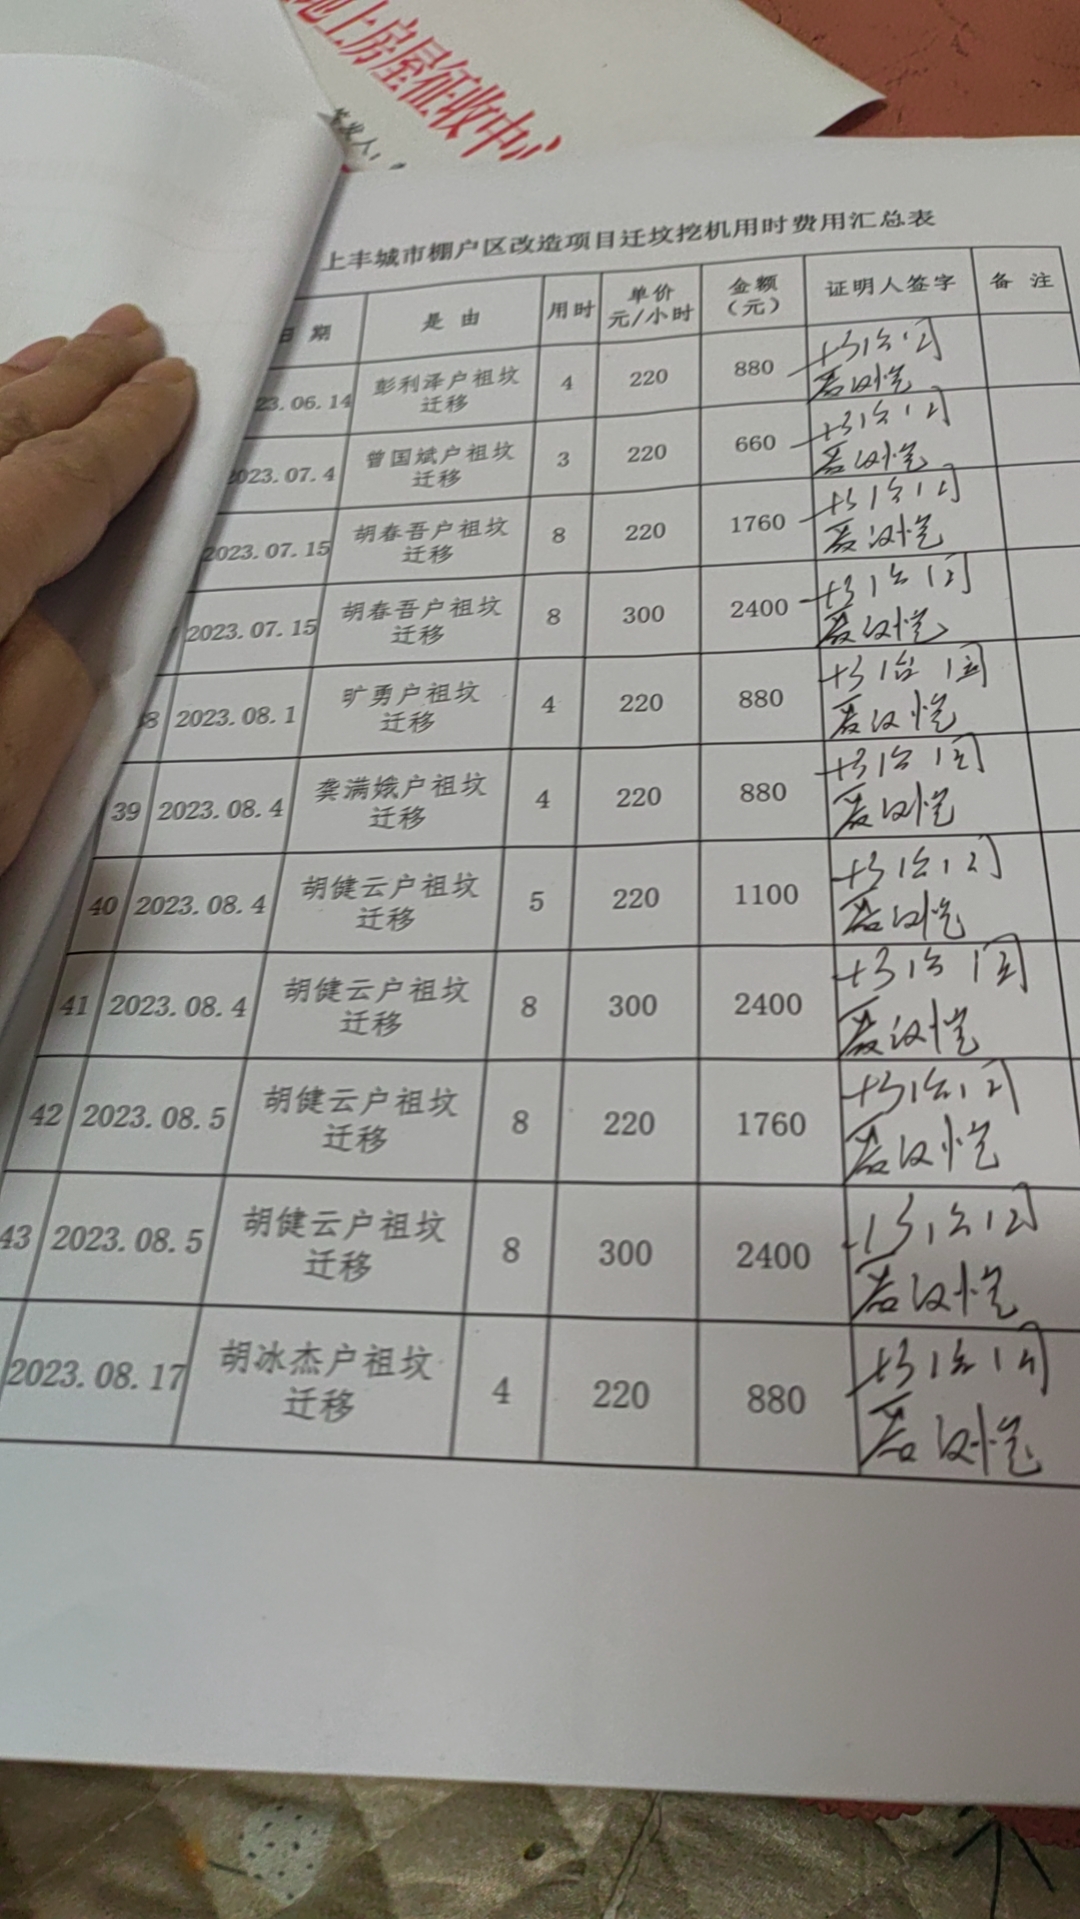 地上房屋征收中心
签发人：
上丰城市棚户区改造项目迁坟挖机用时费用汇总表
日 期 是 由 用时 单价 元/小时 金额 （元） 证明人签字 备 注
23.06.14 彭利泽户祖坟 迁移 4 220 880
2023.07.4 曾国斌户祖坟 迁移 3 220 660
2023.07.15 胡春吾户祖坟 迁移 8 220 1760
2023.07.15 胡春吾户祖坟 迁移 8 300 2400
8 2023.08.1 旷勇户祖坟 迁移 4 220 880
39 2023.08.4 龚满娥户祖坟 迁移 4 220 880
40 2023.08.4 胡健云户祖坟 迁移 5 220 1100
41 2023.08.4 胡健云户祖坟 迁移 8 300 2400
42 2023.08.5 胡健云户祖坟 迁移 8 220 1760
43 2023.08.5 胡健云户祖坟 迁移 8 300 2400
2023.08.17 胡冰杰户祖坟 迁移 4 220 880